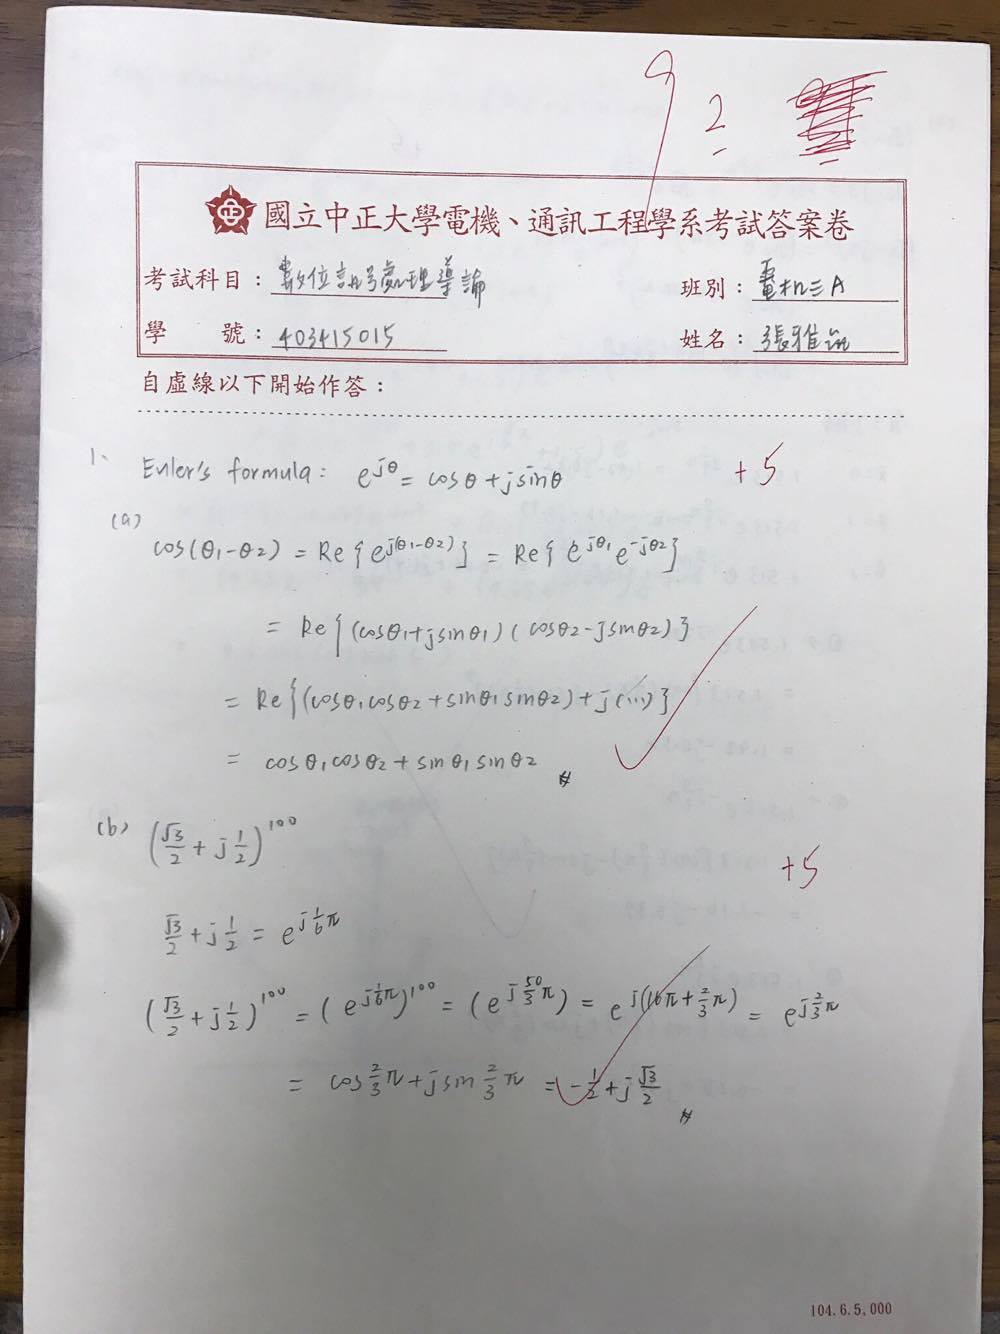 92
國立中正大學電機、通訊工程學系考試答案卷
考試科目：數位訊號處理導論
班別：電机三A
學 號：403415015
姓名：張雅
自虛線以下開始作答：
1、 Euler's formula: e^{jθ} = cosθ + j sinθ +5
(a)
cos(θ1-θ2) = Re{e^{j(θ1-θ2)}} = Re{e^{jθ1} e^{-jθ2}}
= Re{(cosθ1+jsinθ1)(cosθ2-jsinθ2)}
= Re{(cosθ1cosθ2+sinθ1sinθ2)+j(...)}
= cosθ1cosθ2+sinθ1sinθ2 #
(b) (√3/2 + j 1/2)^{100}
+5
√3/2 + j 1/2 = e^{j 1/6 π}
(√3/2 + j 1/2)^{100} = (e^{j 1/6 π})^{100} = (e^{j 50/3 π}) = e^{j(16π + 2/3 π)} = e^{j 2/3 π}
= cos 2/3 π + j sin 2/3 π = -1/2 + j √3/2 #
104.6.5,000